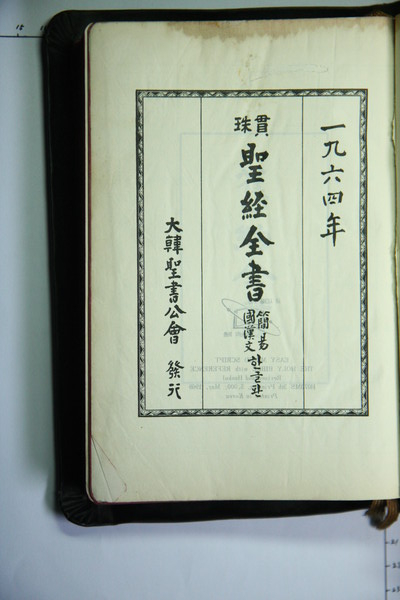 一九六四年
貫珠
聖經全書
簡易
國漢文
한글판
大韓聖書公會 發行
15